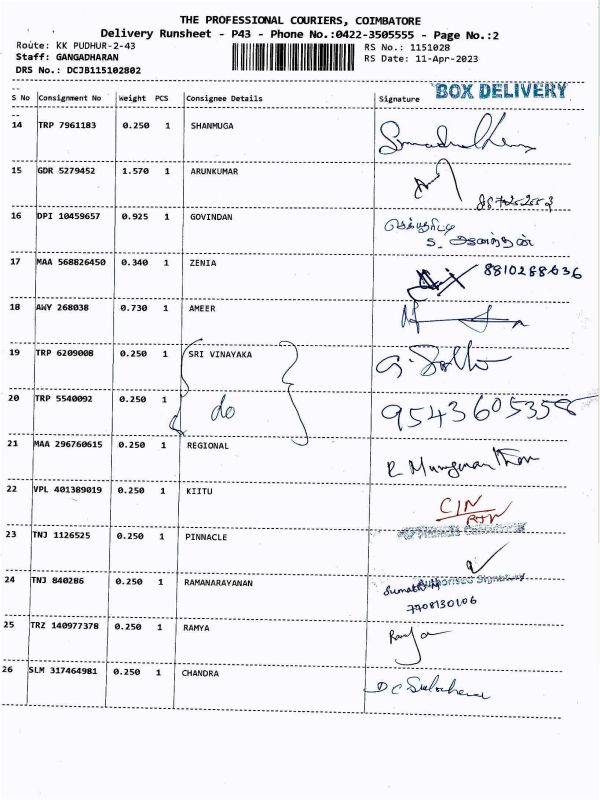 THE PROFESSIONAL COURIERS, COIMBATORE
Delivery Runsheet - P43 - Phone No.:0422-3505555 - Page No.:2
Route: KK PUDHUR-2-43 RS No.: 1151028
Staff: GANGADHARAN RS Date: 11-Apr-2023
DRS No.: DCJB115102802
BOX DELIVERY
S No Consignment No Weight PCS Consignee Details Signature
14 TRP 7961183 0.250 1 SHANMUGA
15 GDR 5279452 1.570 1 ARUNKUMAR
16 DPI 10459657 0.925 1 GOVINDAN
17 MAA 568826450 0.340 1 ZENIA 8810288636
18 AWY 268038 0.730 1 AMEER
19 TRP 6209008 0.250 1 SRI VINAYAKA
20 TRP 5540092 0.250 1 do 9543605358
21 MAA 296760615 0.250 1 REGIONAL
22 VPL 401389019 0.250 1 KIITU
23 TNJ 1126525 0.250 1 PINNACLE
Authorised Signatory
24 TNJ 840286 0.250 1 RAMANARAYANAN
7708130106
25 TRZ 140977378 0.250 1 RAMYA Ramya
26 SLM 317464981 0.250 1 CHANDRA